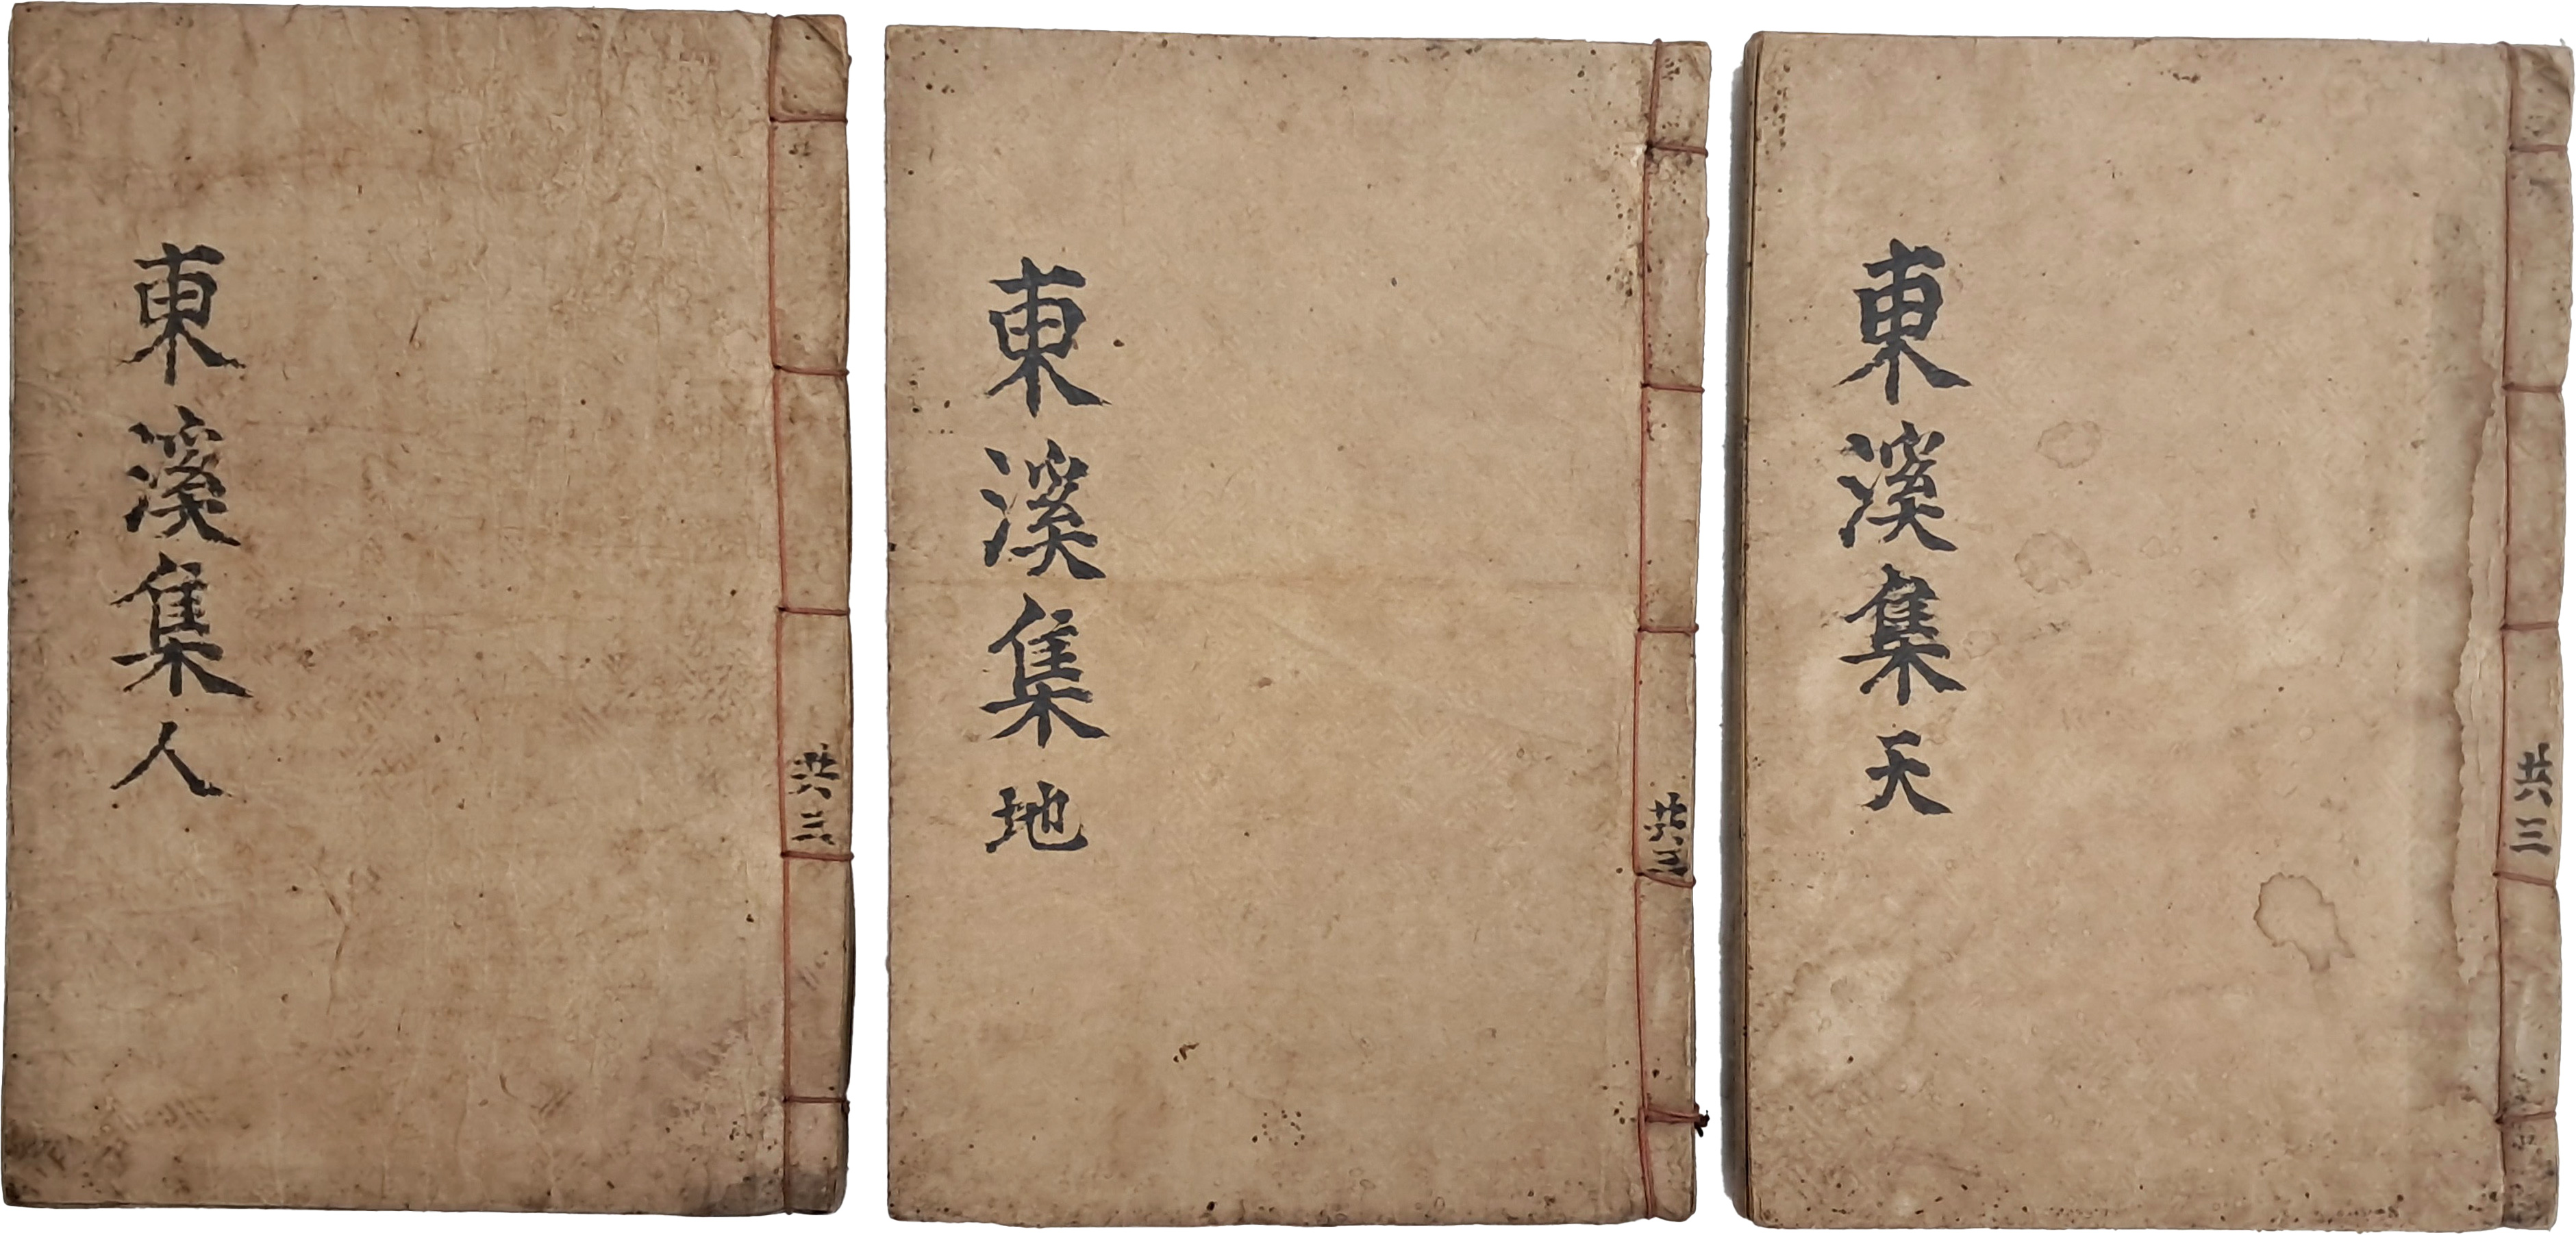 共三
東溪集天
共三
東溪集地
共三
東溪集人